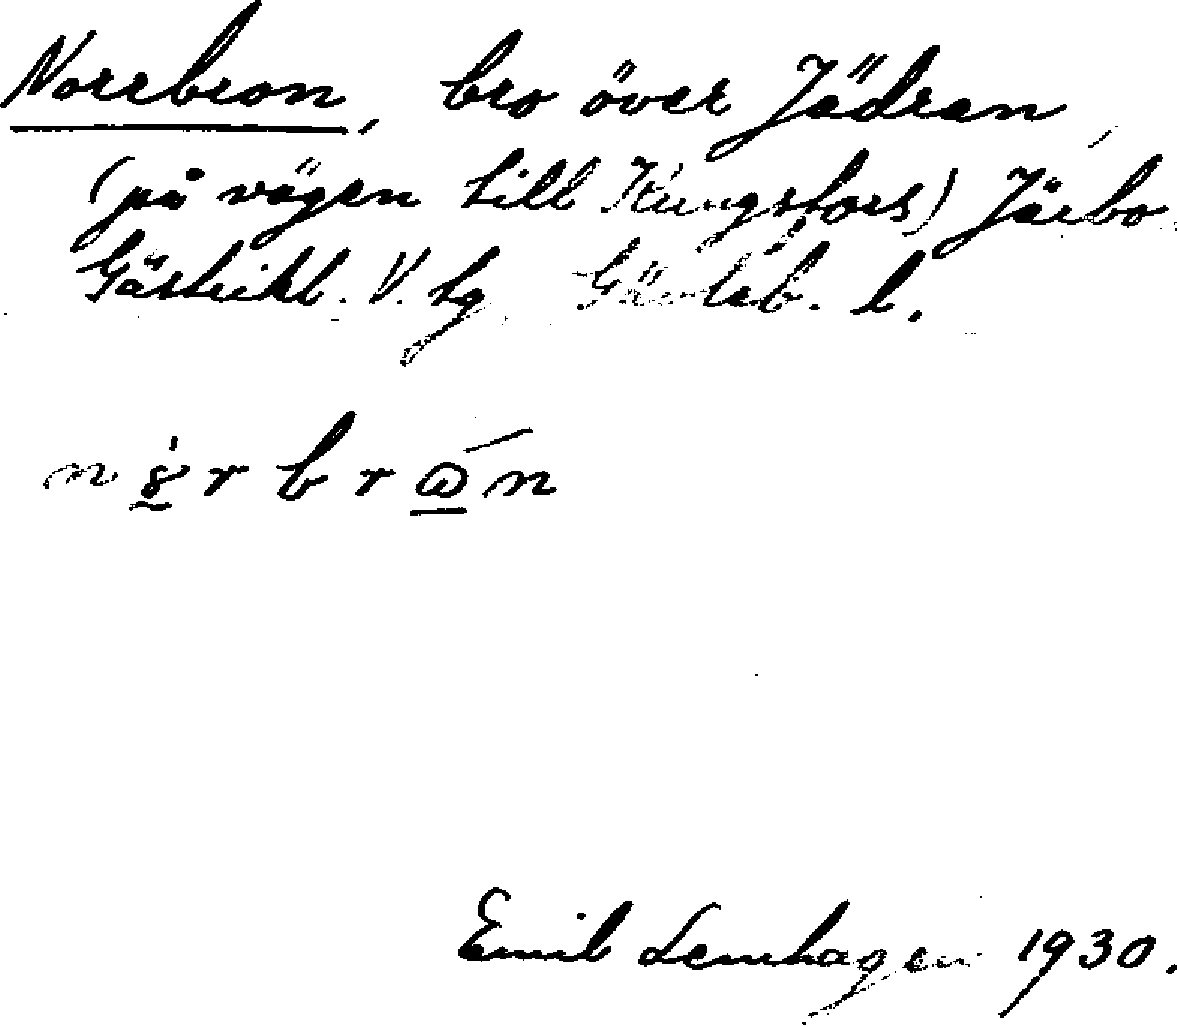 Norrbron, bro över Jädran,
(på vägen till Kungsfors) Järbo
Gästrikl. V. tg Gävleb. l.
Emil Lemhagen 1930.